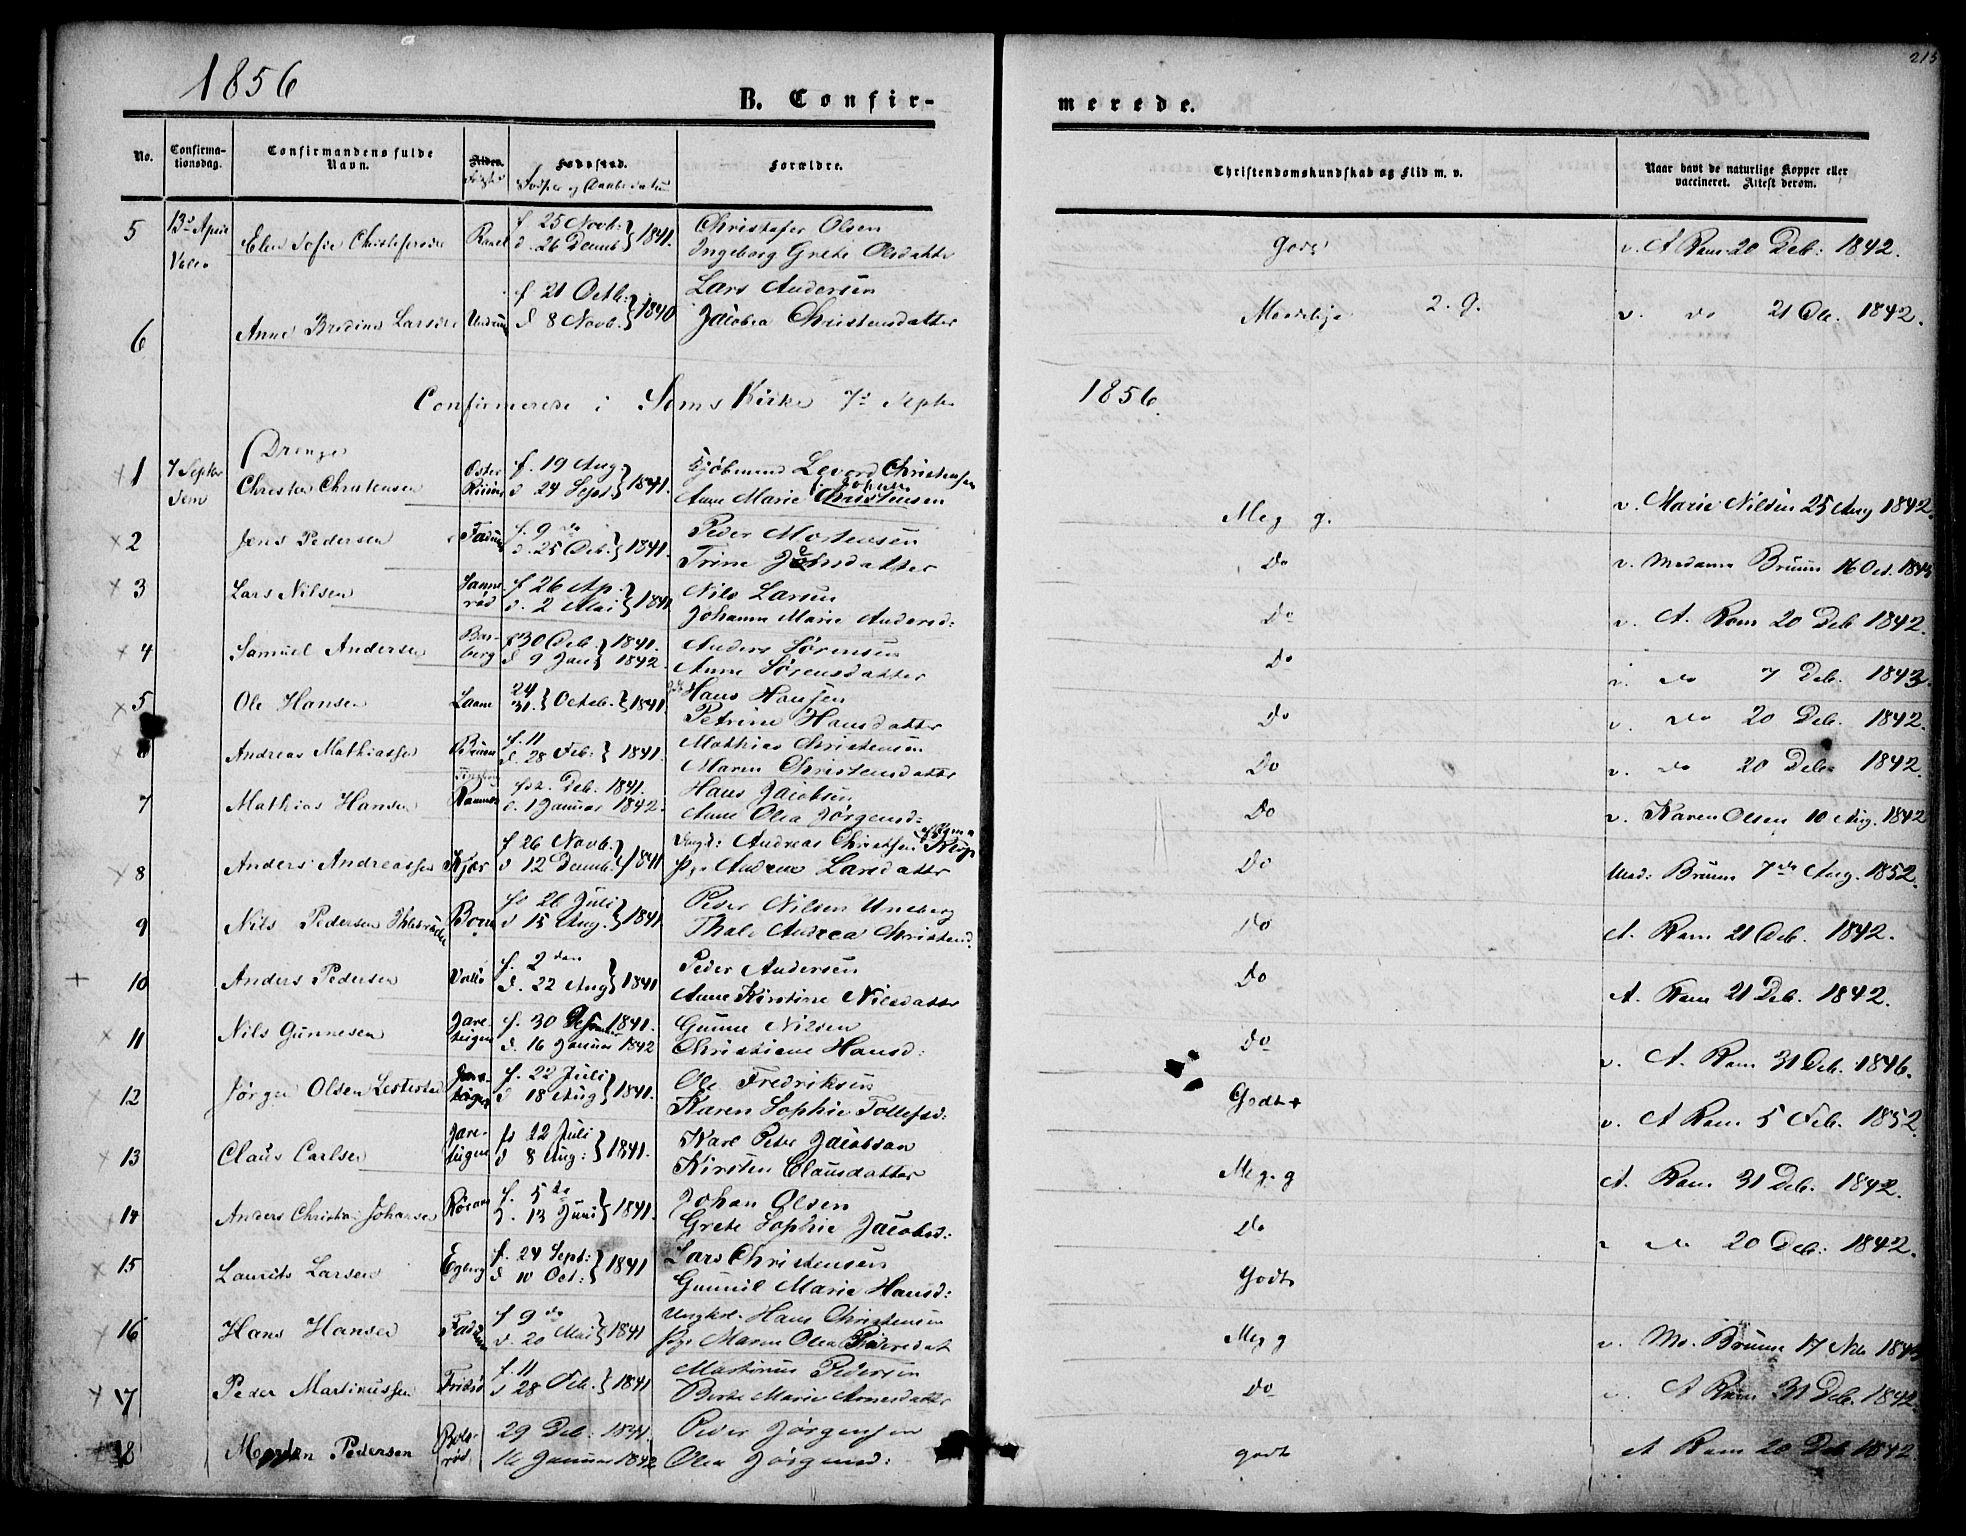 1856
215
B. Confir-
merede.
No.
Confirma-
tionsdag.
Confirmandens fulde
Navn.
Alder.
Fødested.
Fødsels og Daabsdatum
Forældre.
Christendomskundskab og Flid m. v.
Naar havt de naturlige Kopper eller
vaccineret. Attest derom.
5 13de April Elen Sofie Christofersdr Ramd f 25 Novb: d. 26 Decmb } 1841. Christofer Olsen
Ingeborg Grete Olsdatter
Godt v. A Ram 20 Deb: 1842.
6 Anne Bredine Larsdr f 21 Octb: d 8 Novb. } 1840 Lars Andersen
Jacobea Christensdatter
Maadelig 2. g. v. do 21 De. 1842.
Confirmerede i Sems Kirke 7de Septb
1856.
Drenge
1 7 Septbr Sem Christen Christensen f. 19 Aug. d 24 Sept. } 1841. Kjøbmand Levord Christensen
Anne Marie Christensen
Meg g. v. Marie Nilsen 25 Aug 1842.
2 Jens Pedersen Fadum f. 9 do d. 25 Deb. } 1841. Peder Mortensen
Trine Jensdatter
Do v. Madame Bruun 16 Oct. 1843
3 Lars Nilsen Sanne-
rød f 26 Ap. d. 2 Mai } 1841 Nils Larsen
Johanne Marie Andersd:
Do v. A. Ram 20 Deb 1842.
4 Samuel Andersen Bas-
berg f 30 Deb. 1841. d 9 Jan 1842. Anders Sørensen
Anne Sørensdatter
Do v. do 7 Deb. 1843.
5 Ole Hansen 24 31. } Octob. } 1841. Hans Hansen
Petrine Hansdatter
Do v. do 20 Deb. 1842.
6 Andreas Mathiassen f. 11 d. 28 Feb: } 1841. Mathias Christensen
Maren Christensdatter
Do v. do 20 Deb 1842.
7 Mathias Hansen f 2. Deb. 1841. d. 1 Januar 1842. Hans Jacobsen
Anne Olea Jørgensd:
Do v. Karen Olsen 10 Aug. 1842
8 Anders Andreassen Kjær f 26 Novb. d 12 Decmb. } 1841 Ungk: Andreas Christsen
Pige Andrea Larsdatter
Do Mad: Bruun 7de Aug. 1852.
9 Nils Pedersen f 26 Juli d 15 Aug. } 1841 Peder Nilsen Uneberg
Thale Andrea Christensd.
Do A. Ram 21 Deb. 1842.
10 Anders Pedersen Vallø f. 2 den d. 22 Aug } 1841 Peder Andersen
Anne Kirstine Nilsdatter
Do A. Ram 21 Deb. 1842.
11 Nils Gunnesen Jare-
teigen f. 30 Desember 1841. d. 16 Januar 1842 Gunne Nilsen
Christiane Hansd:
Do v. A. Ram 31 Deb. 1846.
12 Jørgen Olsen Jare-
teigen f. 22 Juli d 18 Aug } 1841. Ole Fredriksen
Karen Sophie Tollefsd:
Godt + v. A Ram 5 Feb. 1852.
13 Claus Carlsen Jare-
teigen f 12 Juli d 8 Aug: } 1841. Karl Peter Jacobsen
Kirsten Clausdatter
Meg. g A. Ram 31 Deb. 1842.
14 Anders Christian Johansen f. 5 do d. 13 Juni } 1841. Johan Olsen
Grete Sophie Jacobsd:
Do v do 20 Deb: 1842.
15 Laurits Larsen f. 24 Sept: d 10 Oct: } 1841 Lars Christensen
Gunnil Marie Hansd:
Godt
16 Hans Hansen Fadum f 9 do d. 20 Mai } 1841 Ungkrl. Hans Christensen
Pige Maren Olea Pedersdat
Meg g v. Md. Bruun 17 Nov 1843
17 Peder Martinussen f. 11 d 28 Feb. } 1841 Martinus Pedersen
Berte Marie Arnesdatter
Do v. A Ram 31 Deb. 1842.
18 Morten Pedersen 29 Deb. 1841. 16 Januar 1842 Peder Jørgensen
Olea Jørgensd:
godt A Ram 20 Deb 1842.